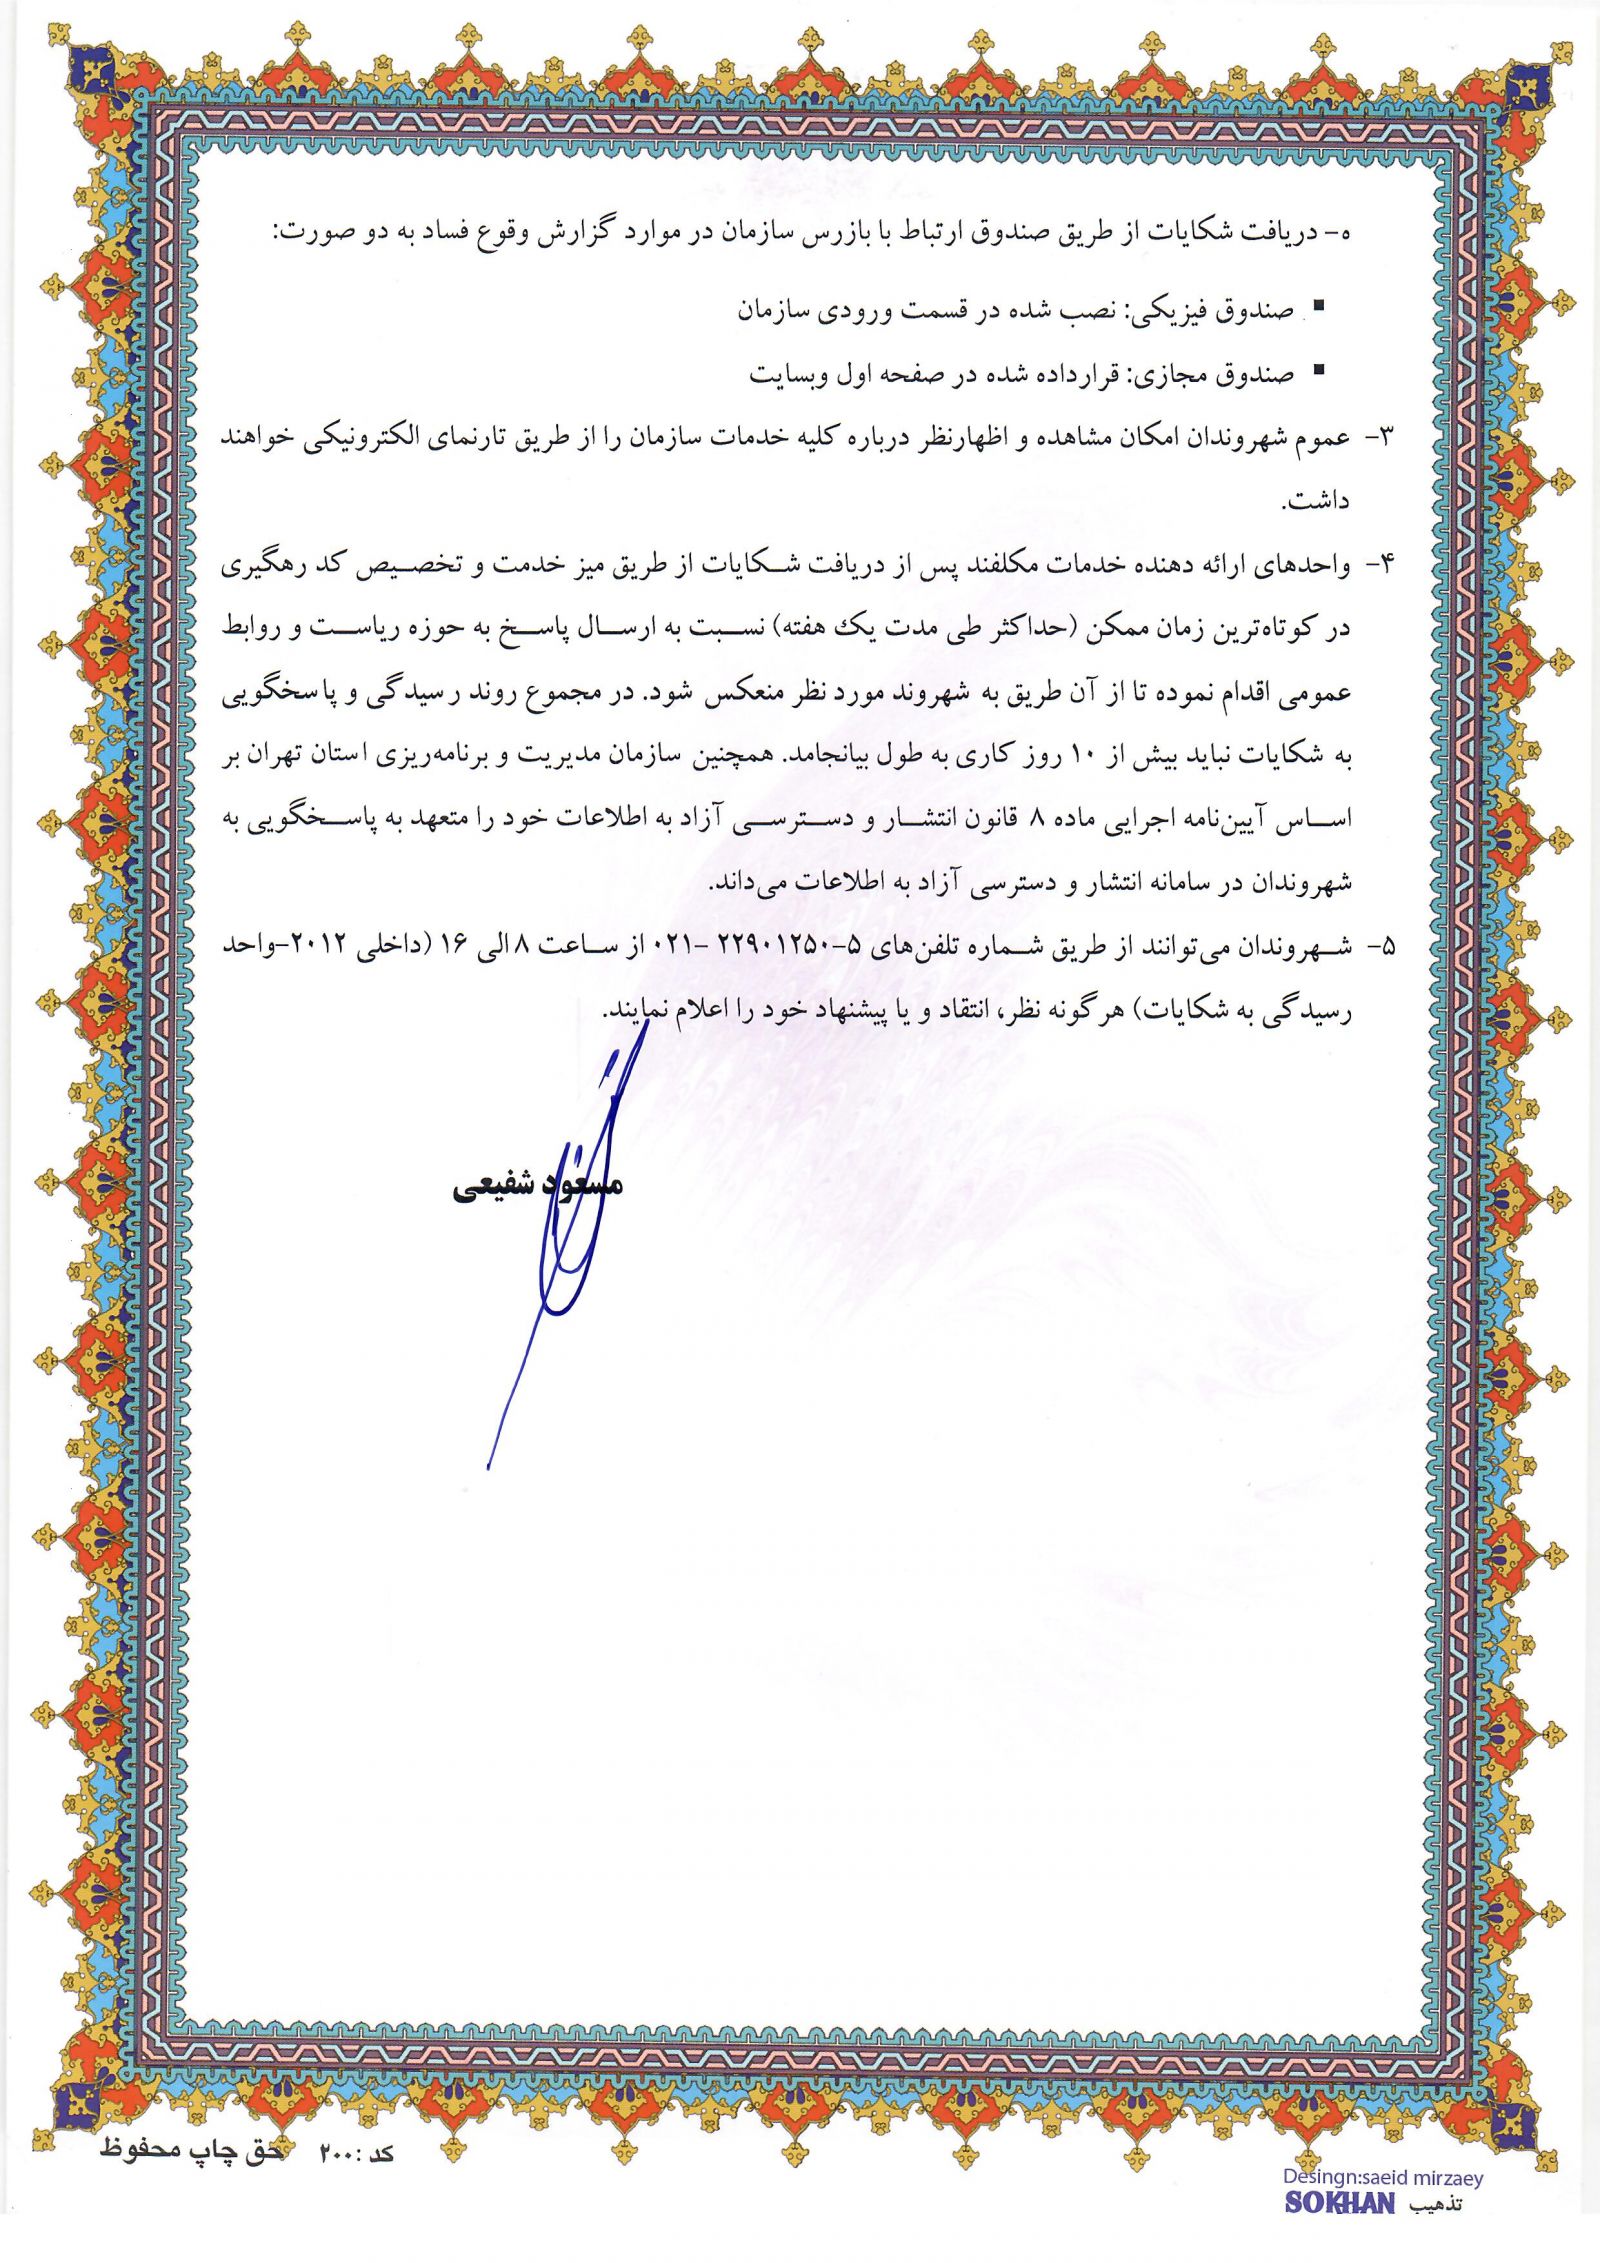 ه- دریافت شکایات از طریق صندوق ارتباط با بازرس سازمان در موارد گزارش وقوع فساد به دو صورت:
▪ صندوق فیزیکی: نصب شده در قسمت ورودی سازمان
▪ صندوق مجازی: قرارداده شده در صفحه اول وبسایت
۳- عموم شهروندان امکان مشاهده و اظهارنظر درباره کلیه خدمات سازمان را از طریق تارنمای الکترونیکی خواهند
داشت.
۴- واحدهای ارائه دهنده خدمات مکلفند پس از دریافت شکایات از طریق میز خدمت و تخصیص کد رهگیری
در کوتاه‌ترین زمان ممکن (حداکثر طی مدت یک هفته) نسبت به ارسال پاسخ به حوزه ریاست و روابط
عمومی اقدام نموده تا از آن طریق به شهروند مورد نظر منعکس شود. در مجموع روند رسیدگی و پاسخگویی
به شکایات نباید بیش از ۱۰ روز کاری به طول بیانجامد. همچنین سازمان مدیریت و برنامه‌ریزی استان تهران بر
اساس آیین‌نامه اجرایی ماده ۸ قانون انتشار و دسترسی آزاد به اطلاعات خود را متعهد به پاسخگویی به
شهروندان در سامانه انتشار و دسترسی آزاد به اطلاعات می‌داند.
۵- شهروندان می‌توانند از طریق شماره تلفن‌های ۵-۲۲۹۰۱۲۵۰ -۰۲۱ از ساعت ۸ الی ۱۶ (داخلی ۲۰۱۲-واحد
رسیدگی به شکایات) هرگونه نظر، انتقاد و یا پیشنهاد خود را اعلام نمایند.
مسعود شفیعی
کد :۲۰۰ حق چاپ محفوظ
Desingn:saeid mirzaey
تذهیب SOKHAN